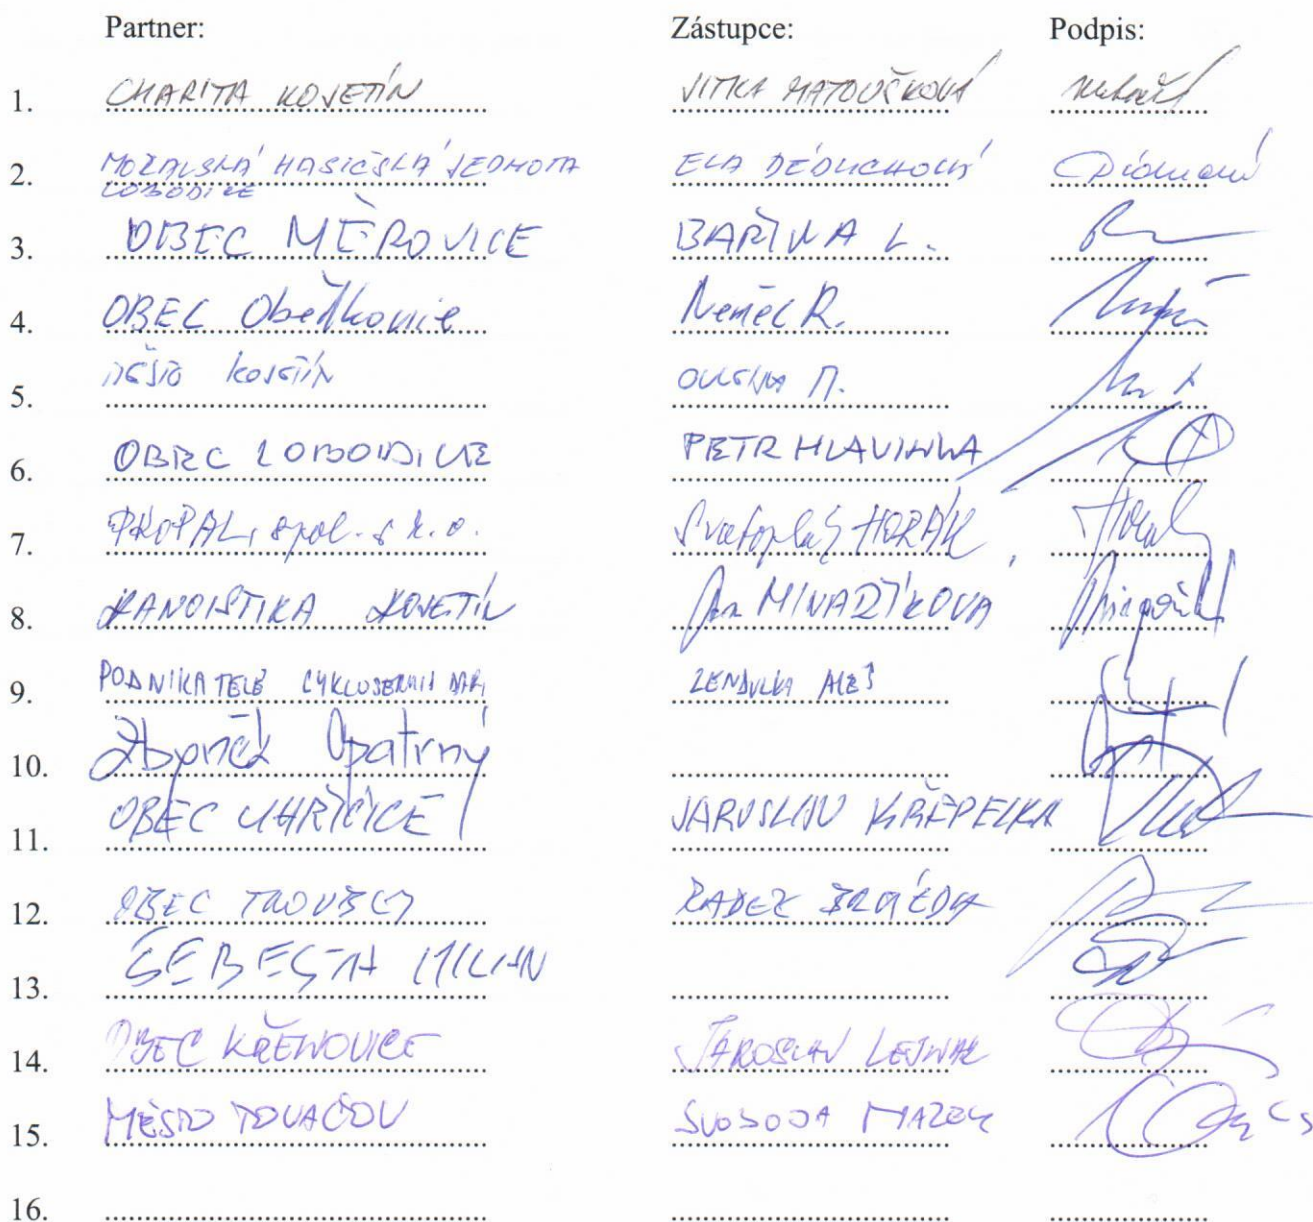 Partner: Zástupce: Podpis:
1. CHARITA KOJETÍN JITKA MATOUŠKOVÁ
2. MORAVSKÁ HASIČSKÁ JEDNOTA
LOBODICE
3. OBEC MĚROVICE BAŘINA L.
4. OBEC Obědkovice Němec R.
5. MĚSTO KOJETÍN
6. OBEC LOBODICE PETR HLAVINKA
7. PROPAL, spol. s r. o. Svatopluk HORÁK
8. KANOISTIKA KOJETÍN MINAŘÍKOVÁ
9. PODNIKATELÉ CYKLOSERVIS ZENDULKA ALEŠ
10. Zbyněk Opatrný
11. OBEC UHŘIČICE JAROSLAV KŘEPELKA
12. OBEC TROUBKY RADEK BRÁZDA
13. ŠEBESTA MILAN
14. OBEC KŘENOVICE JAROSLAV
15. MĚSTO TOVAČOV SVOBODA MAREK
16.